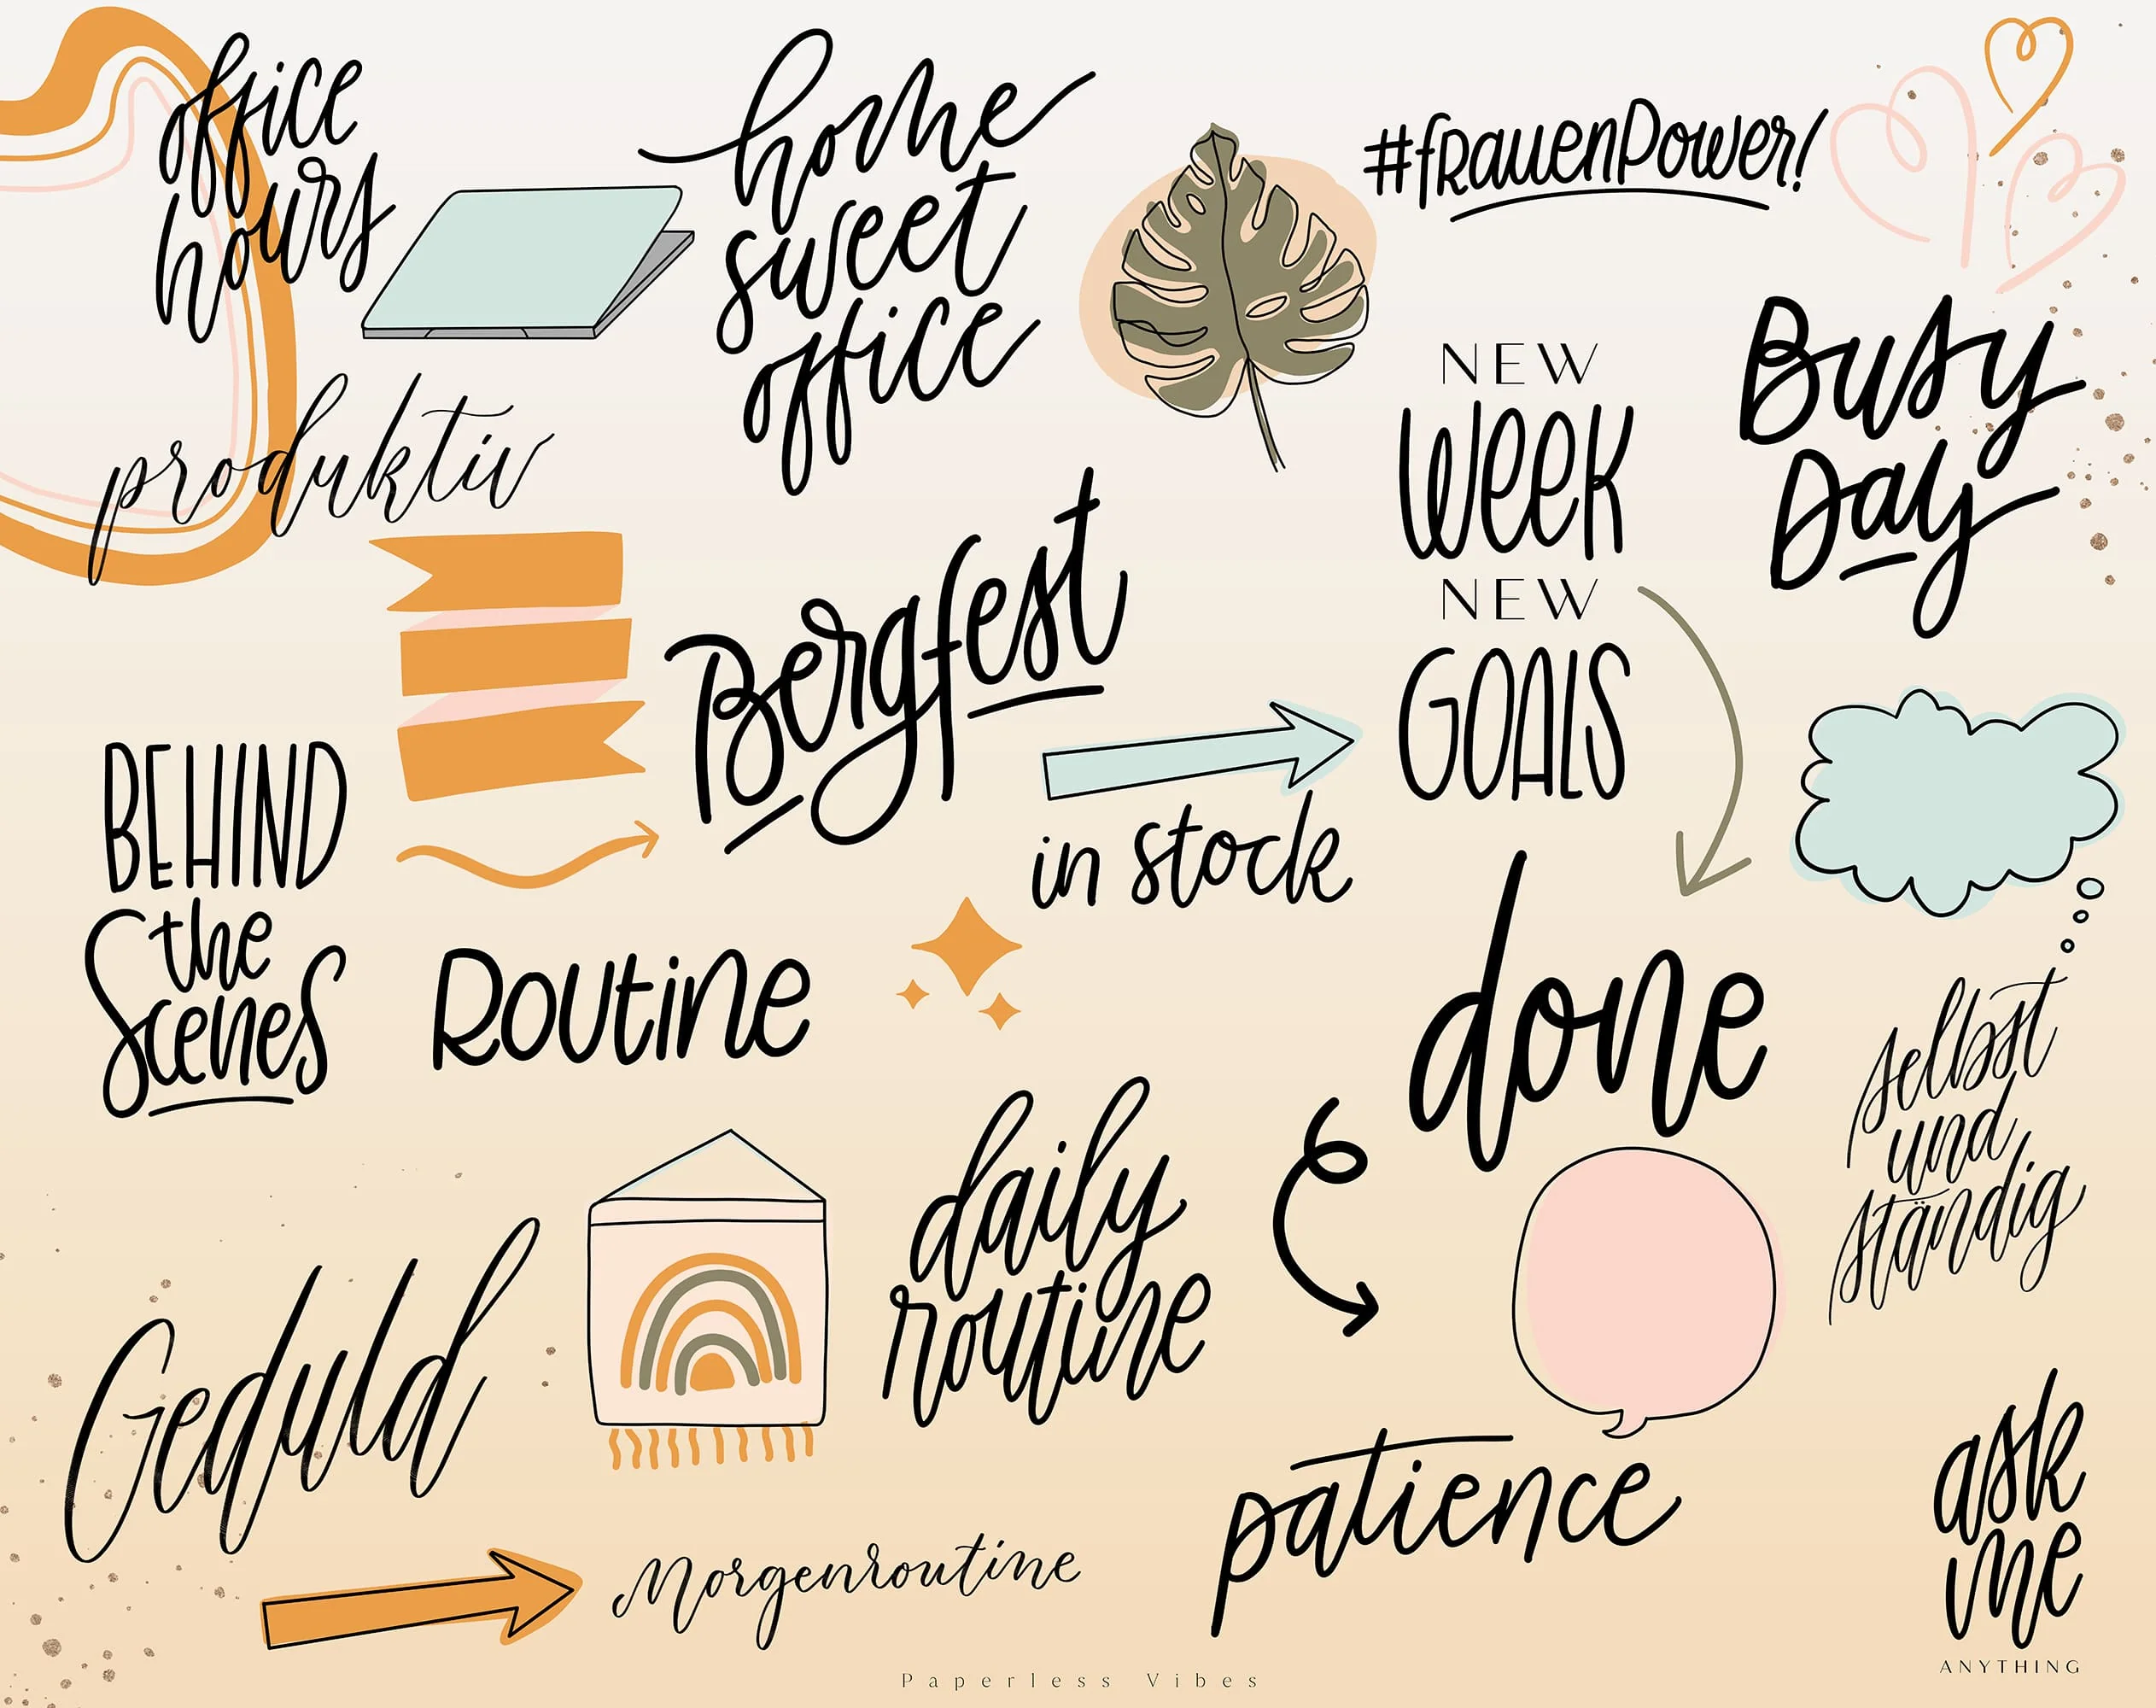 office
hours
home
sweet
office
#fRauenPower!
produktiv
NEW
Week
NEW
GOALS
Busy
Day
Bergfest
in stock
BEHIND
the
Scenes
Routine
done
selbst
und
ständig
daily
routine
Geduld
patience
Morgenroutine
ask
me
ANYTHING
Paperless Vibes